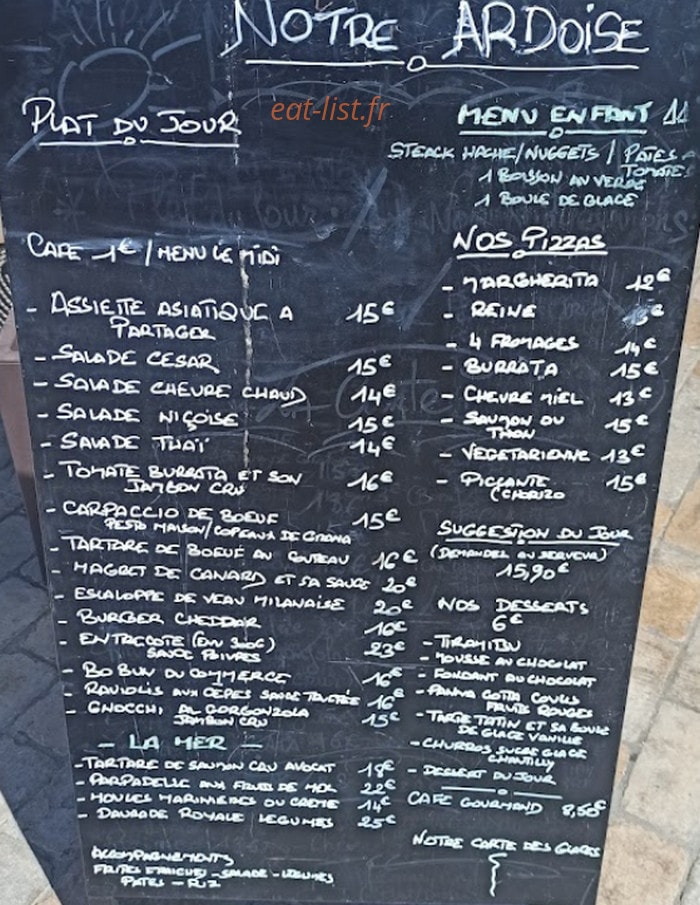 NOTRE ARDOISE
eat-list.fr
PLAT DU JOUR
CAFE 1€ / MENU LE MIDI
- ASSIETTE ASIATIQUE A PARTAGER 15€
- SALADE CESAR 15€
- SALADE CHEVRE CHAUD 14€
- SALADE NIÇOISE 15€
- SALADE THAÏ 14€
- TOMATE BURRATA ET SON
JAMBON CRU 16€
- CARPACCIO DE BOEUF 15€
PESTO MAISON/COPEAUX DE
- TARTARE DE BOEUF AU COUTEAU 16€
- MAGRET DE CANARD ET SA SAUCE 20€
- ESCALOPPE DE VEAU MILANAISE 20€
- BURGER CHEDDAR 16€
- ENTRECOTE (ENV 300G) 23€
SAUCE POIVRES
- BO BUN DU COMMERCE 16€
- RAVIOLIS AUX CEPES SAUCE TRUFFÉE 16€
- GNOCCHI AL GORGONZOLA 15€
JAMBON CRU
- LA MER -
- TARTARE DE SAUMON CRU AVOCAT 18€
- PAPPADELLE AUX FRUITS DE MER 22€
- MOULES MARINIERES OU CREME 14€
- DAURADE ROYALE LEGUMES 25€
ACCOMPAGNEMENTS
FRITES FRAICHES - SALADE - LEGUMES
PATES - RIZ
MENU ENFANT 11
STEACK HACHE/NUGGETS / PATES
TOMATES
1 BOISSON AU VERRE
1 BOULE DE GLACE
NOS PIZZAS
- MARGHERITA 12€
- REINE €
- 4 FROMAGES 14€
- BURRATA 15€
- CHEVRE MIEL 13€
- SAUMON OU 15€
THON
- VEGETARIENNE 13€
- PICCANTE 15€
(CHORIZO
SUGGESTION DU JOUR
(DEMANDEZ AU SERVEUR)
15,90€
NOS DESSERTS
6€
- TIRAMISU
- MOUSSE AU CHOCOLAT
- FONDANT AU CHOCOLAT
- PANNA COTTA COULIS
FRUITS ROUGES
- TARTE TATIN ET SA BOULE
DE GLACE VANILLE
- CHURROS SUCRE GLACE
CHANTILLY
- DESSERT DU JOUR
CAFE GOURMAND 8,50€
NOTRE CARTE DES GLACES